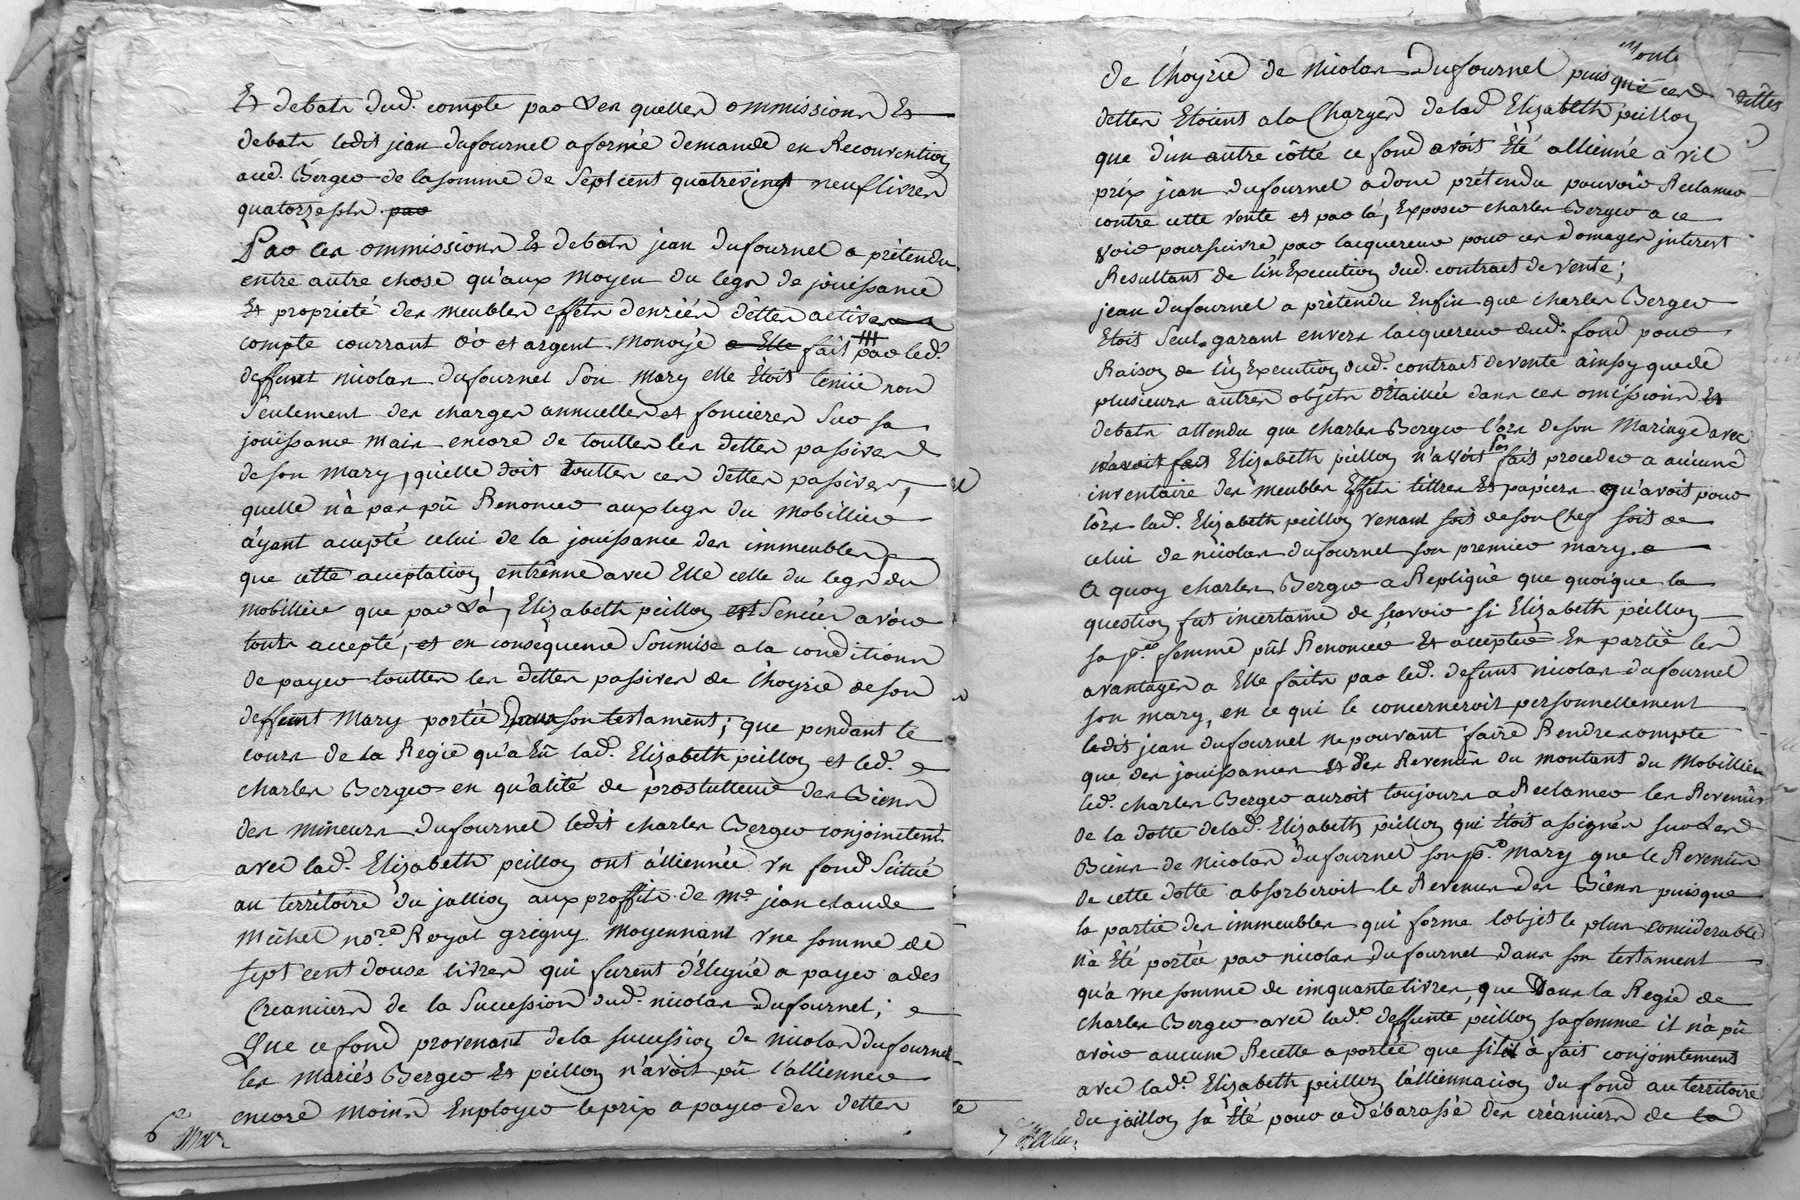 Et debats dud. compte par Les quelles ommissions Et
debats ledit jean dufournel a formé demande en Reconvention
aud. Berger de la somme de sept cent quatrevingt neuf livres
quatorze sols par
Par les ommissions Et debats jean dufournel a prétendu
entre autre chose qu'aux moyen du legs de jouissance
Et proprieté des meubles effets denrées dettes actives
compte courrant òò et argent monoÿé a Elle fait par led.
deffunt nicolas dufournel son mary elle étoit tenüe non
seulement des charges annuelles et foncieres sur sa
jouïssance mais encore de touttes les dettes passives
de son mary, qu'elle doit touttes ces dettes passives,
quelle n'à pas pû Renoncer aux legs du mobillier
áyant accepté celui de la jouissance des immeubles,
que cette acceptation entrênne avec Elle celle du legs du
mobillier que par Là, Elizabeth peillon est sencée avoir
touts accepté, et en conséquence soumise a la conditions
de payer touttes les dettes passives de l'hoyrie de son
deffunt mary portée dans son testament; que pendant le
cours de la Regie qu'a Eû lad. Elizabeth peillon et led.
charles Berger en qu'alité de prostutteur des Biens
des mineurs dufournel ledit charles Berger conjoinctemt.
avec lad. Elizabeth peillon ont álliennée un fond scitué
au territoire du jallion aux proffits de me. jean claude
michel nore. Royal grigny moyennant une somme de
sept cent douse livres qui furent délegué a payer a des
Creanciers de la succession dud. nicolas dufournel;
Que ce fond provenant de la sucession de nicolas dufournel
les mariés Berger Et peillon n'avoit pû l'alliennér
encore moins Employer le prix a payer des dettes
6
de l'hoyrie de nicolas dufournel puis que ces dittes
dettes Etoient a la Charges de lad. Elizabeth peillon
que d'un autre côtté ce fond avoit Été allienné a vil
prix jean dufournel a donc prétendu pouvoir Reclamer
contre cette vente et par lá, Exposer charles Berger a ce
voir poursuivre par lacquereur pour ces domages interest
Resultant de l'in Execution dud. contract de vente;
jean dufournel a prétendu Enfin que charles Berger
Etoit seul garant envers lacquereur dud. fond pour
Raison de l'in Execution dud. contract de vente ainsy que de
plusieurs autres objets détaillée dans ces omissions Et
debats attendu que charles Berger lors de son Mariage avec
n'avoit fait Elizabeth peillon n'avoit pas fait proceder a aucune
inventaire des meubles Effets tittres Et papiers qu'avoit pour
lors lad. Elizabeth peillon venant soit de son Chef soit de
celui de nicolas dufournel son premier mary
a quoy charles Berger a Repliqué que quoique la
question fut incertaine de scavoir si Elizabeth peillon
sa pre. femme pût Renoncer Et accepter En partie les
avantages a Elle faits par led. defunt nicolas dufournel
son mary, en ce qui le concerneroit personnellement
ledit jean dufournel ne pouvant faire Rendre compte
que des jouissances Et des Revenüs du montant du Mobillier
led. charles Berger auroit toujours a Reclamer les Revenûs
de la dotte de lad. Elizabeth peillon qui étoit assignés sur Les
Biens de nicolas dufournel son pr. mary que le Revenûs
de cette dotte absorberoit le Revenus des Biens puisque
la partie des immeubles qui forme l'objet le plus considerable
n'a Été portée par nicolas dufournel dans son testament
qu'a une somme de cinquante livres, que Dans la Regie de
charles Berger avec lade. deffunte peillon sa femme il n'a pû
avoir aucune Recette a portée que s'il à fait conjointement
avec lade. Elizabeth peillon l'alliennacion du fond au territoire
du jaillon sa Été pour ce débarassé des créanciers de la
7